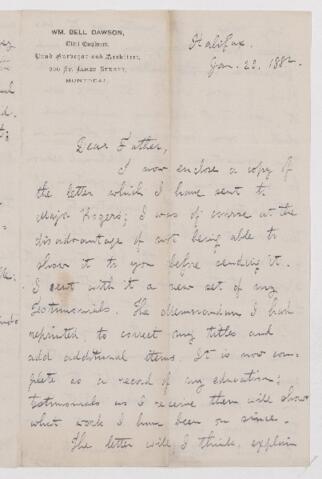 WM. BELL DAWSON,
Civil Engineer,
Land Surveyor and Architect,
St. James Street,
MONTREAL.
Halifax.
Jan. 22, 1882.
Dear Father,
I now enclose a copy of
the letter which I have sent to
Major Rogers; I was of course at the
disadvantage of not being able to
show it to you before sending it.
I sent with it a new set of my
testimonials. The Memorandum I had
reprinted, to correct my titles and
add additional items. It is now com-
plete as a record of my education;
testimonials as I receive them will show
what work I have been on since.
The letter will I think, explain